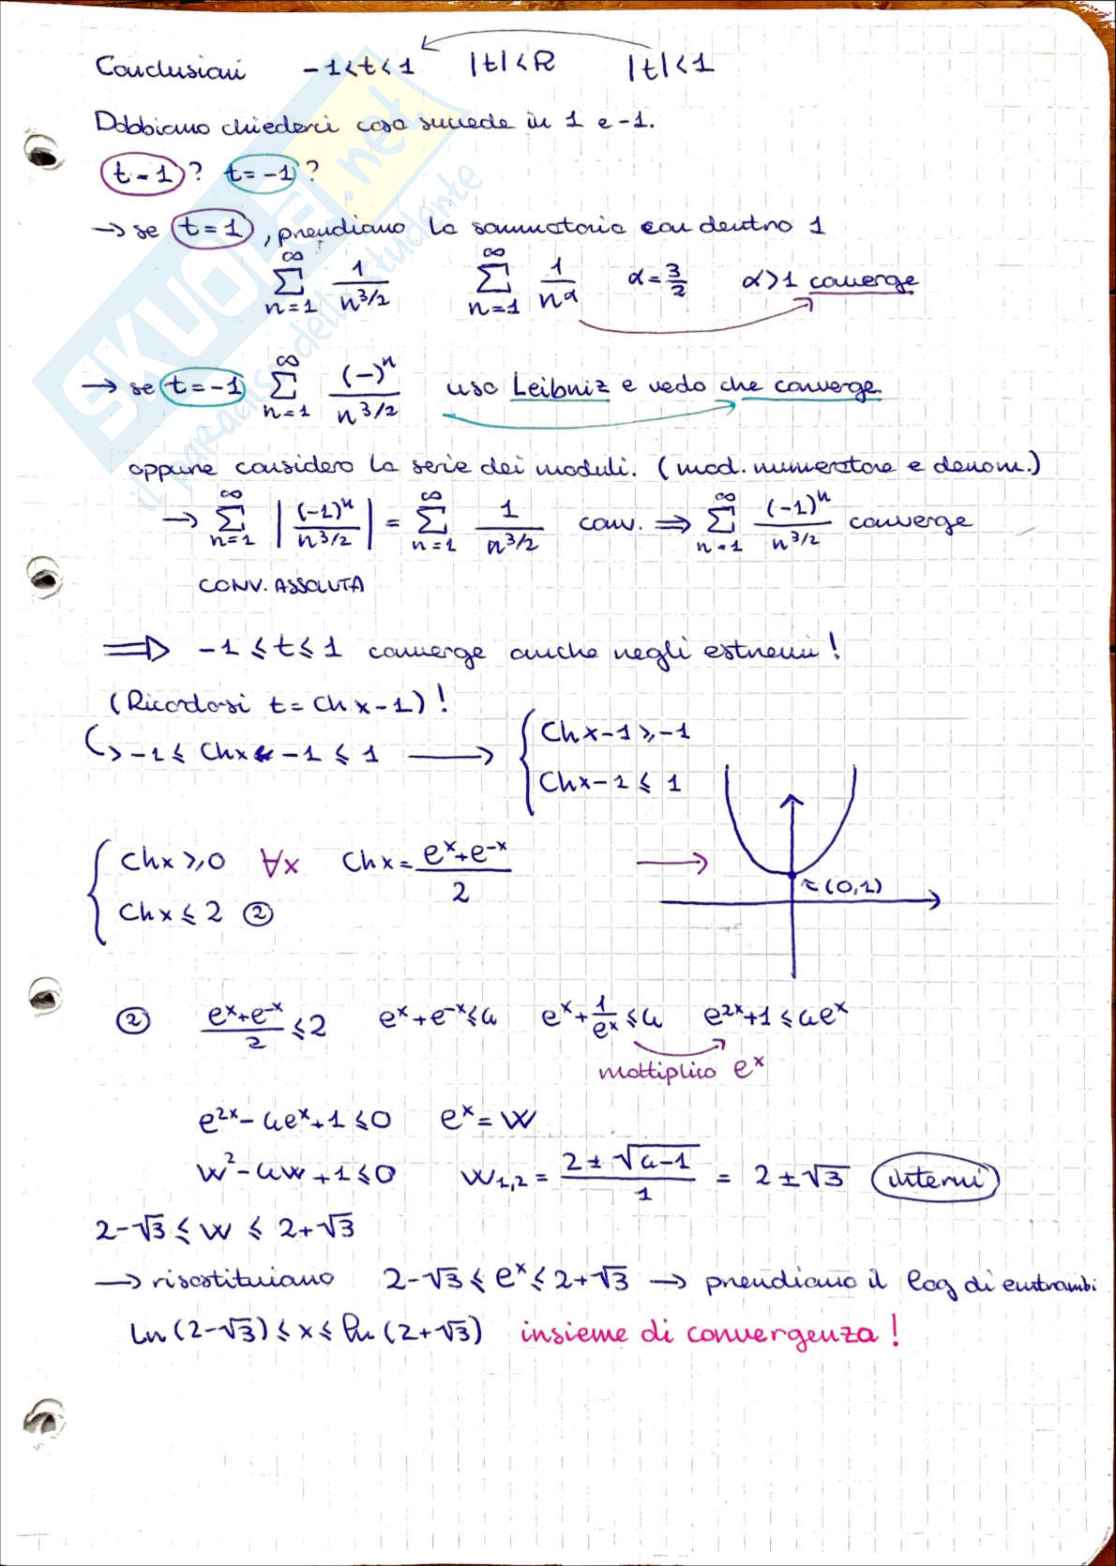 Conclusioni -1<t<1 |t|<R |t|<1
Dobbiamo chiederci cosa succede in 1 e -1.
t=1? t=-1?
→ se t=1, prendiamo la sommatoria con dentro 1
∞∑n=1 1/n^3/2 ∞∑n=1 1/n^α α=3/2 α>1 converge
→ se t=-1 ∞∑n=1 (-)^n/n^3/2 uso Leibniz e vedo che converge
oppure considero la serie dei moduli. (mod. numeratore e denom.)
→ ∞∑n=1 |(-1)^n/n^3/2| = ∞∑n=1 1/n^3/2 conv. ⇒ ∞∑n=1 (-1)^n/n^3/2 converge
CONV. ASSOLUTA
⇒ -1≤t≤1 converge anche negli estremi!
(Ricordarsi t= Ch x-1)!
↪ -1≤ Chx -1 ≤ 1 → { Chx-1≥-1
Chx-1≤ 1
{ Chx≥0 ∀x Chx= e^x+e^-x/2 →
Chx≤2 ②
(0,1)
② e^x+e^-x/2 ≤2 e^x+e^-x≤4 e^x+1/e^x≤4 e^2x+1≤4e^x
moltiplico e^x
e^2x-4e^x+1≤0 e^x=w
w^2-4w+1≤0 w1,2= 2±√4-1/1 = 2±√3 interni
2-√3≤ w ≤ 2+√3
→ risostituiamo 2-√3≤e^x≤2+√3 → prendiamo il log di entrambi
ln(2-√3)≤x≤ln(2+√3) insieme di convergenza!
SKUOLA.net
il paradiso dello studente